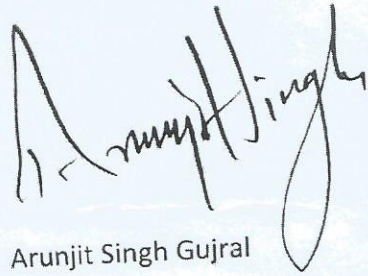 Arunjit Singh
Arunjit Singh Gujral